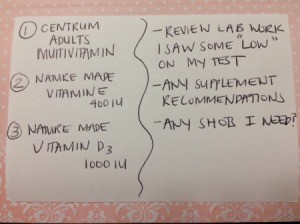 ① CENTRUM
ADULTS
MULTIVITAMIN
② NATURE MADE
VITAMIN E
400 IU
③ NATURE MADE
VITAMIN D3
1000 IU
- REVIEW LAB WORK
I SAW SOME "LOW"
ON MY TEST
- ANY SUPPLEMENT
RECOMMENDATIONS
- ANY SHOTS I NEED?